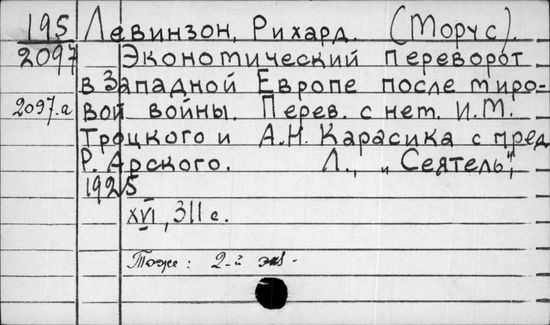 195 Левинзон, Рихард. (Морус).
2097 Экономический переворот
в Западной Европе после миро-
2097.а вой войны. Перев. с нем. И.М.
Троцкого и А.Н. Карасика с пред.
Р. Арского. Л., "Сеятель",
1925
XVI, 311 с.
Тоже: 2-й экз.